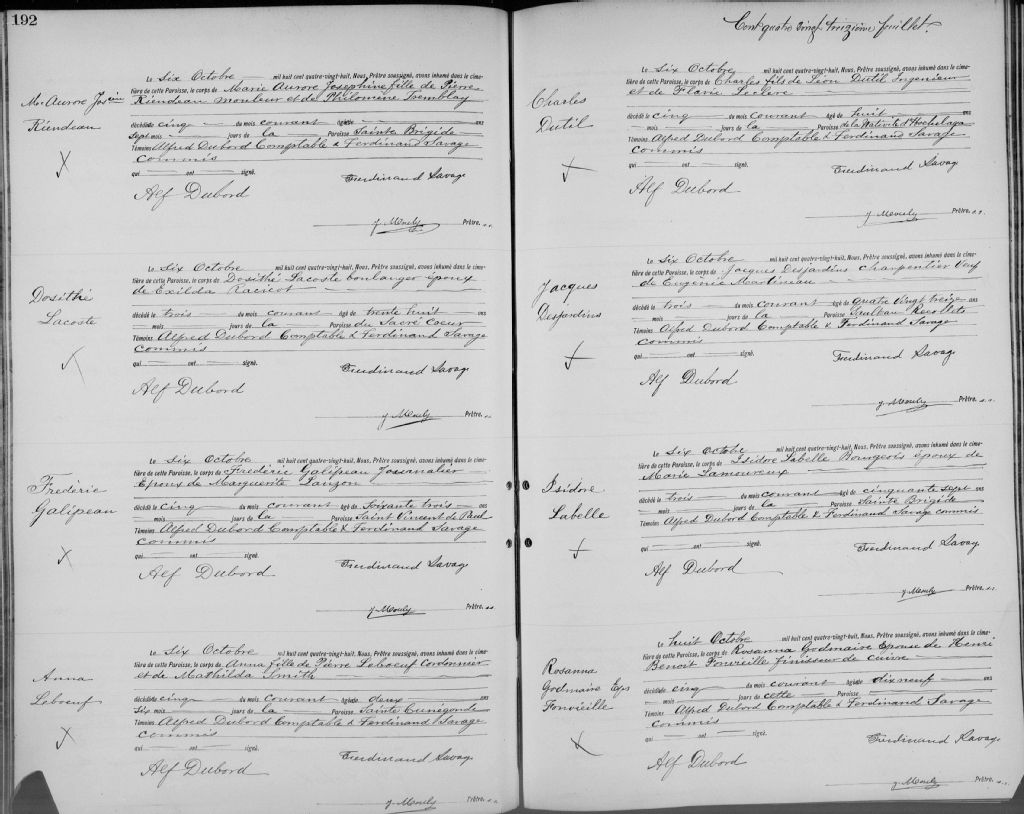 192
Me Aurore Josein
Riendeau
Le Six Octobre mil huit cent quatre-vingt-huit, Nous, Prêtre soussigné, avons inhumé dans le cime-
tière de cette Paroisse, le corps de Marie Aurore Josephine fille de Pierre
Riendeau mouleur et de Philomène Tremblay
décédée le cinq du mois courant âgée de ans
Sept mois jours de la Paroisse Sainte Brigide
Témoins Alfred Dubord Comptable & Ferdinand Savage
commis
qui ont signé.
Ferdinand Savage
Alf Dubord
Prêtre. s.s.
Dosithé
Lacoste
Le Six Octobre mil huit cent quatre-vingt-huit, Nous, Prêtre soussigné, avons inhumé dans le cime-
tière de cette Paroisse, le corps de Dosithé Lacoste boulanger époux
de Exilda Racicot
décédé le trois du mois courant âgé de trente huit ans
mois jours de la Paroisse du Sacré Coeur
Témoins Alfred Dubord Comptable & Ferdinand Savage
commis
qui ont signé.
Ferdinand Savage
Alf Dubord
Prêtre. s.s.
Frédéric
Galipeau
Le Six Octobre mil huit cent quatre-vingt-huit, Nous, Prêtre soussigné, avons inhumé dans le cime-
tière de cette Paroisse, le corps de Frédéric Galipeau Journalier
Epoux de Marguerite Lauzon
décédé le cinq du mois courant âgé de Soixante trois ans
mois jours de la Paroisse Saint Vincent de Paul
Témoins Alfred Dubord Comptable & Ferdinand Savage
commis
qui ont signé.
Ferdinand Savage
Alf Dubord
Prêtre. s.s.
Anna
Leboeuf
Le Six Octobre mil huit cent quatre-vingt-huit, Nous, Prêtre soussigné, avons inhumé dans le cime-
tière de cette Paroisse, le corps de Anna fille de Pierre Leboeuf Cordonnier
et de Mathilda Smith
décédée le cinq du mois courant âgée de deux ans
Six mois jours de la Paroisse Sainte Cunégonde
Témoins Alfred Dubord Comptable & Ferdinand Savage
commis
qui ont signé.
Ferdinand Savage
Alf Dubord
Prêtre. s.s.
Cent quatre vingt treizième feuillet.
Charles
Dutil
Le Six Octobre mil huit cent quatre-vingt-huit, Nous, Prêtre soussigné, avons inhumé dans le cime-
tière de cette Paroisse, le corps de Charles fils de Léon Dutil Ingenieur
et de Flavie Leclerc
décédé le cinq du mois courant âgé de huit ans
mois jours de la Paroisse de la Nativité d'Hochelaga
Témoins Alfred Dubord Comptable & Ferdinand Savage
commis
qui ont signé.
Ferdinand Savage
Alf Dubord
Prêtre. s.s.
Jacques
Desjardins
Le Six Octobre mil huit cent quatre-vingt-huit, Nous, Prêtre soussigné, avons inhumé dans le cime-
tière de cette Paroisse, le corps de Jacques Desjardins charpentier Veuf
de Eugenie Martineau
décédé le trois du mois courant âgé de quatre vingt treize ans
mois jours de la Paroisse Sault au Recollets
Témoins Alfred Dubord Comptable & Ferdinand Savage
commis
qui ont signé.
Ferdinand Savage
Alf Dubord
Prêtre. s.s.
Isidore
Labelle
Le Six Octobre mil huit cent quatre-vingt-huit, Nous, Prêtre soussigné, avons inhumé dans le cime-
tière de cette Paroisse, le corps de Isidore Labelle Bourgeois époux de
Marie Lamoureux
décédé le trois du mois courant âgé de cinquante sept ans
mois jours de la Paroisse Sainte Brigide
Témoins Alfred Dubord Comptable & Ferdinand Savage commis
qui ont signé.
Ferdinand Savage
Alf Dubord
Prêtre. s.s.
Rosanna
Godmaire Eps
Fonvieille
Le huit Octobre mil huit cent quatre-vingt-huit, Nous, Prêtre soussigné, avons inhumé dans le cime-
tière de cette Paroisse, le corps de Rosanna Godmaire Epouse de Henri
Benoit Fonvieille finisseur de cuivre
décédée le cinq du mois courant âgée de dix neuf ans
mois jours de cette Paroisse
Témoins Alfred Dubord Comptable & Ferdinand Savage
commis
qui ont signé.
Ferdinand Savage
Alf Dubord
Prêtre. s.s.